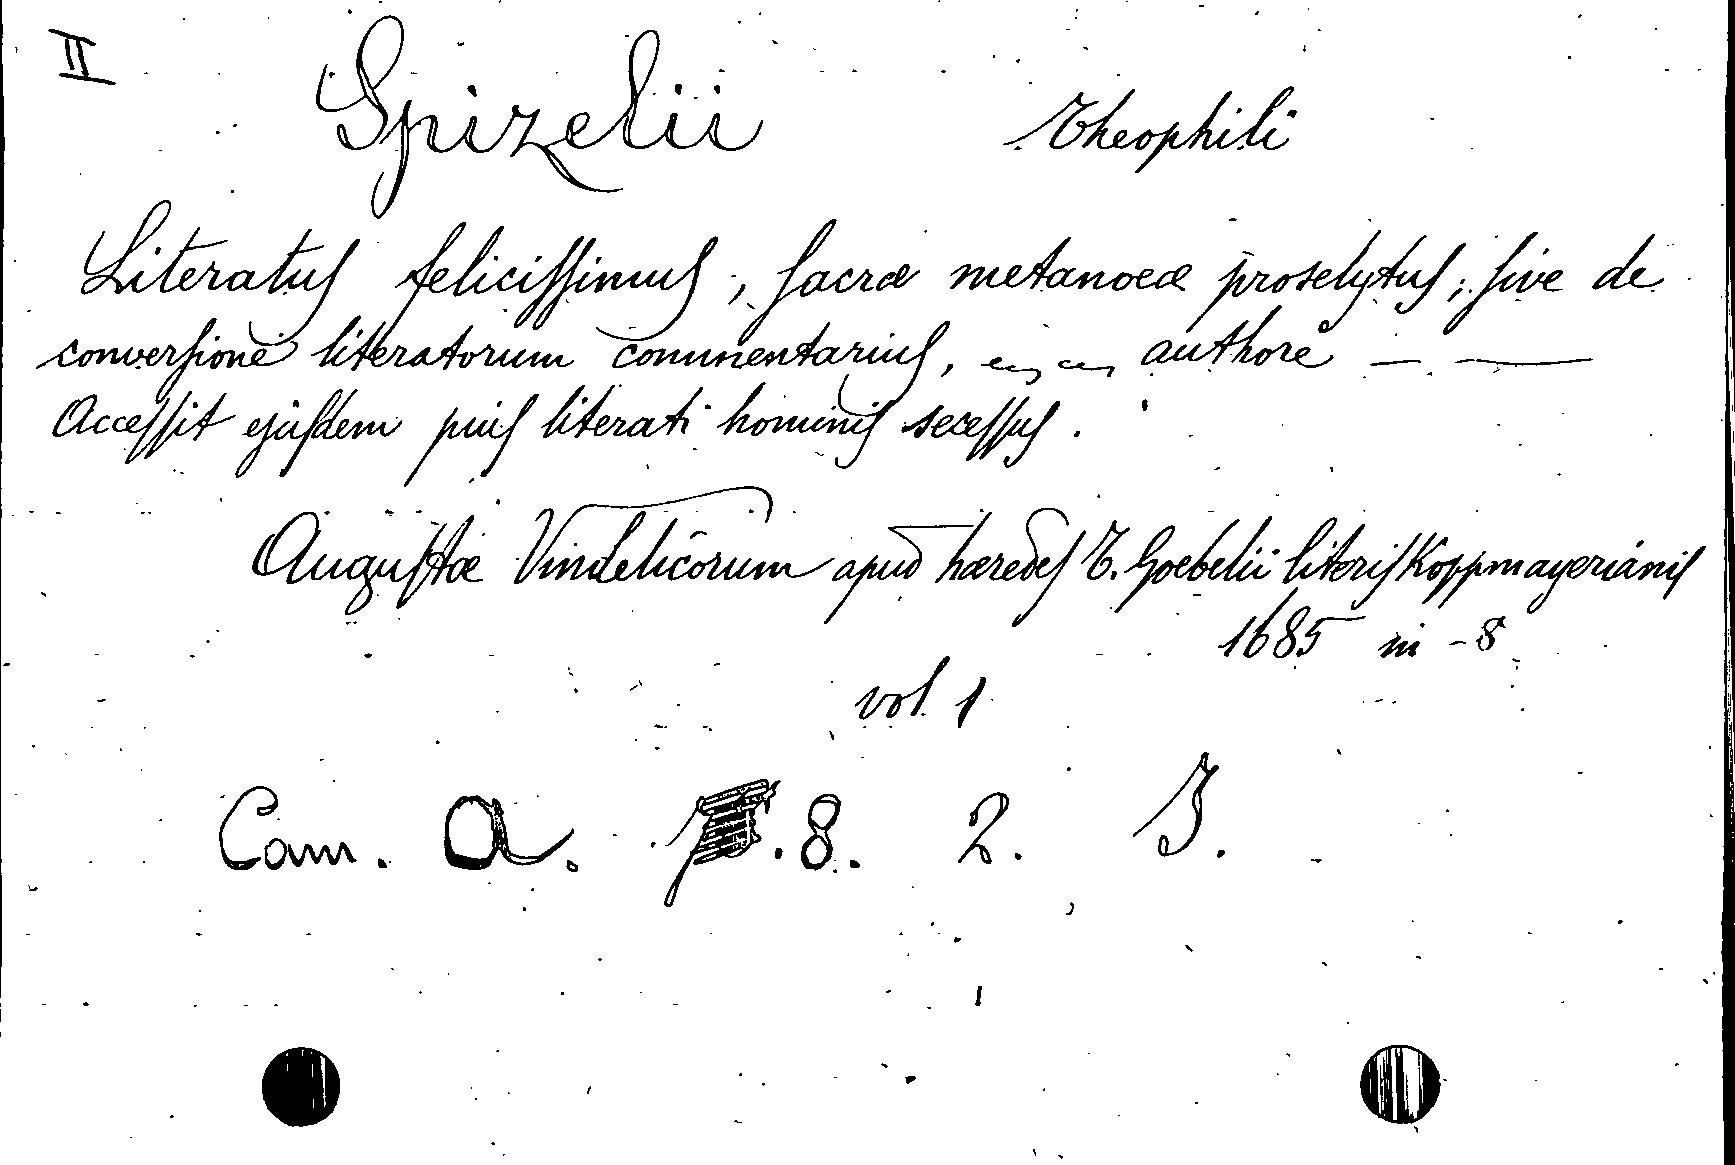 II
Spizelii Theophili
Literatus felicissimus, sacræ metanoeæ proselytus; sive de
conversione literatorum commentarius, authore — —
Accessit ejusdem pius literati hominis secessus.
Augustæ Vindelicorum apud hæredes T. Goebelii literis Koppmayerianis
1685 in-8
vol 1
Cam. a. 8. 2. J.